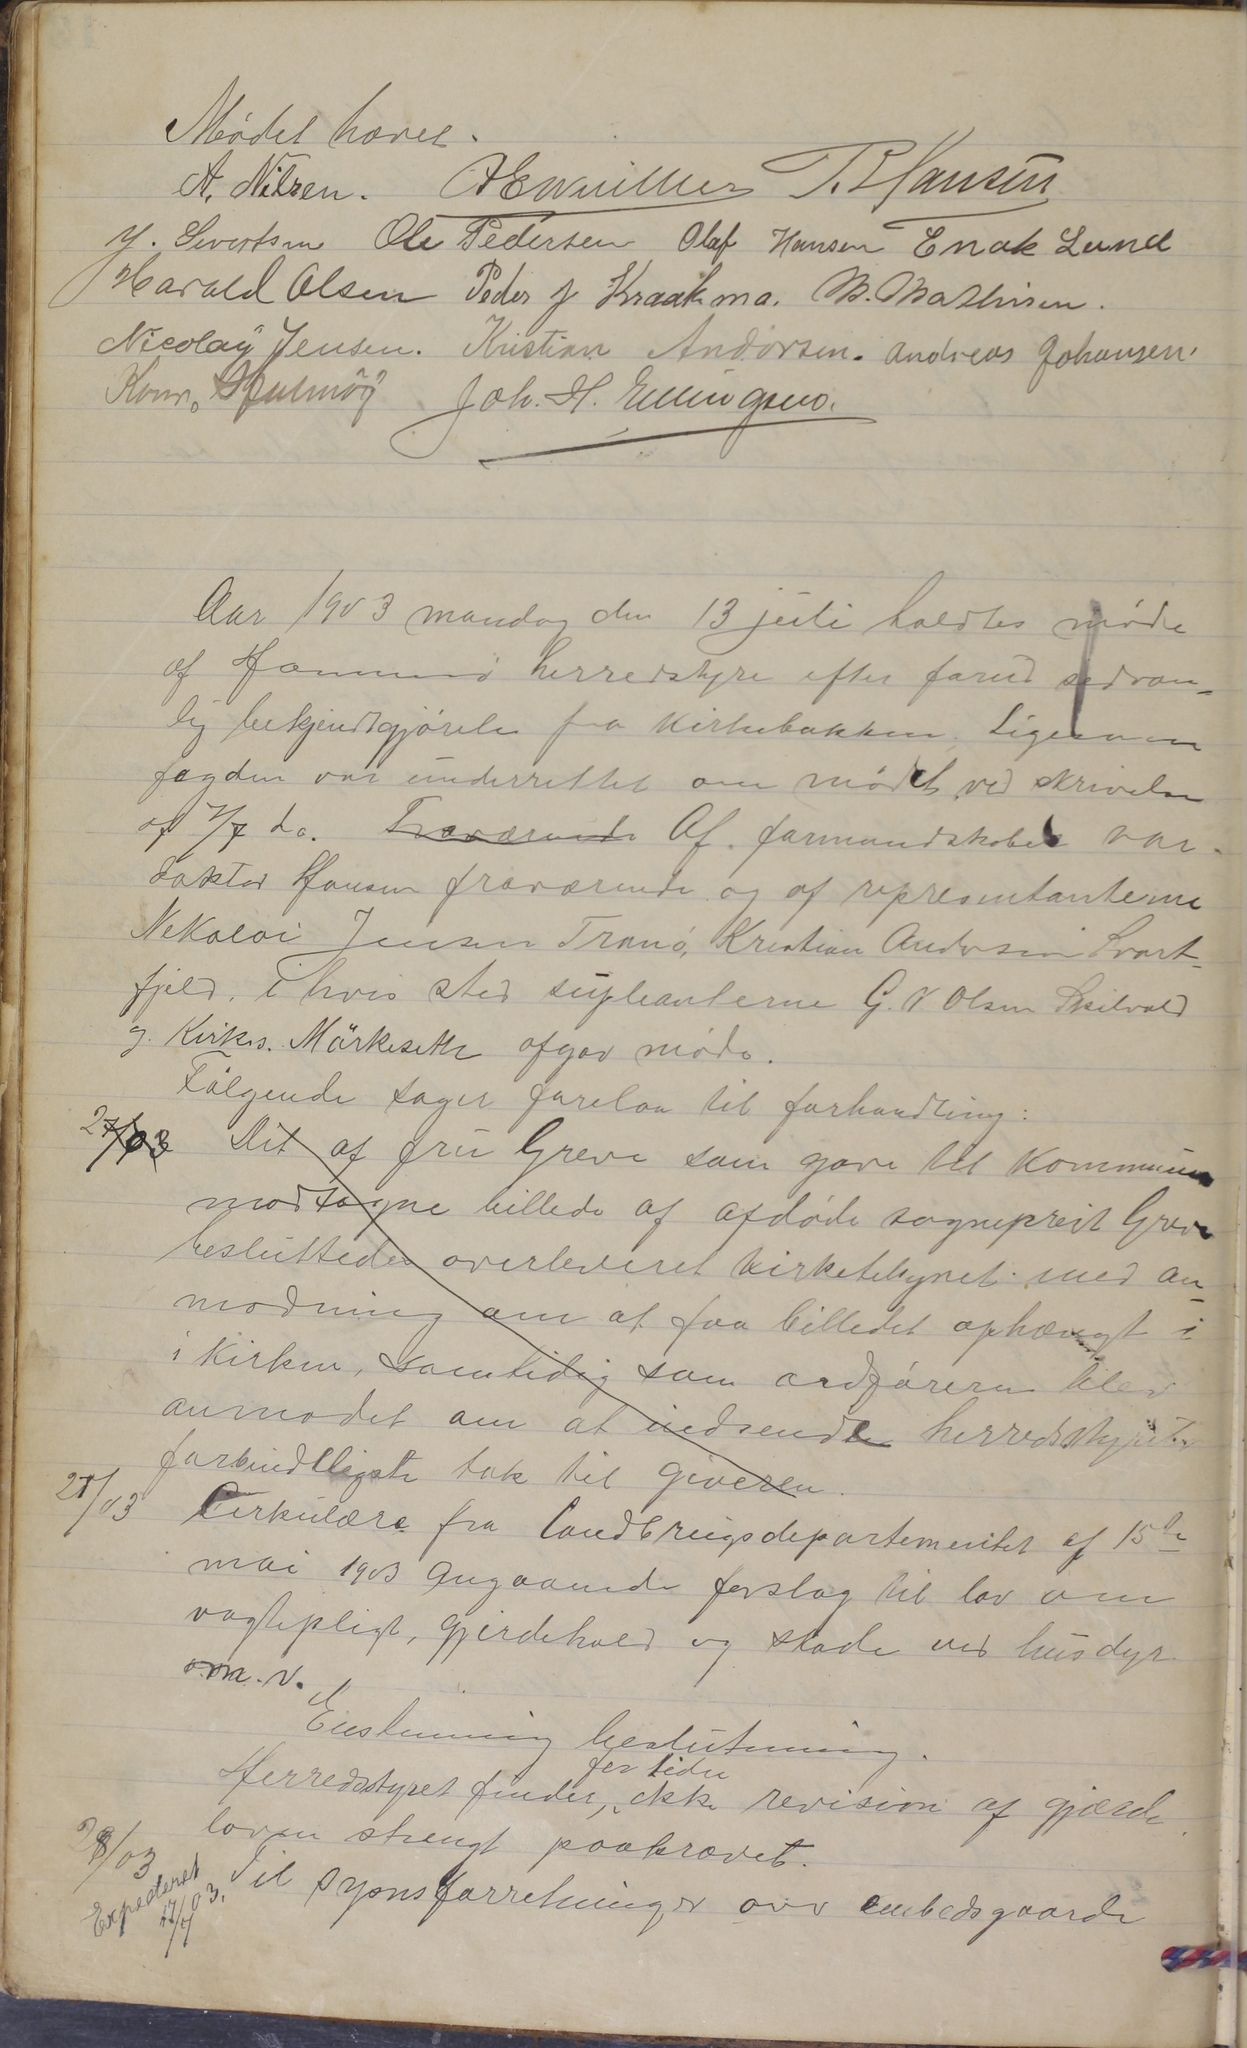 Mødet hævet.
A. Nilsen. T. Hansen
J. Sivertsen Ole Pedersen Olaf Hansen Enok Lund
Harald Olsen Peder J Kraakmo. M. Mathisen.
Nicolaÿ Jensen. Kristian Andersen. Andreas Johansen.
Konr. Joh. H. Ellingsen.
Aar 1903 mandag den 13 juli holdtes møde
af Hammerø herredstyre efter forud sedvan-
lig bekjendtgjørelse fra kirkebakken. Ligesom
fogden var underrettet om mødet ved skrivelse
af 7/7 ds. Fraværende Af formandskabet var
doktor Hansen fraværende og af representanterne
Nekolai Jensen Tranø, Kristian Andersen Svart-
fjeld, i hvis sted supleanterne G. V Olsen Skilvold
g. Kirks. Mørkesett afgav møde.
Følgende sager forelaa til forhandling:
27/03 Det af fru Greve som gave til kommunen
modtagne billede af afdøde sogneprest Greve
besluttedes overleveret kirketilsynet med an-
modning om at faa billedet ophængt i
i kirken, samtidig som ordføreren blev
anmodet om at indsende herredsstyrets
forbindtligste tak til giveren.
27/03 Cirkulære fra Landbrugsdepartementet af 15de
mai 1903 angaaende forslag til lov om
vogtepligt, gjerdehold og skade ved husdyr
m. v.
Enstemmig beslutning.
for tiden
Herredsstyret finder, ikke revision af gjærde
loven strengt paakrævet.
28/03 Til synsforretninger over embedsgaarde
Expederet
17/7 03.